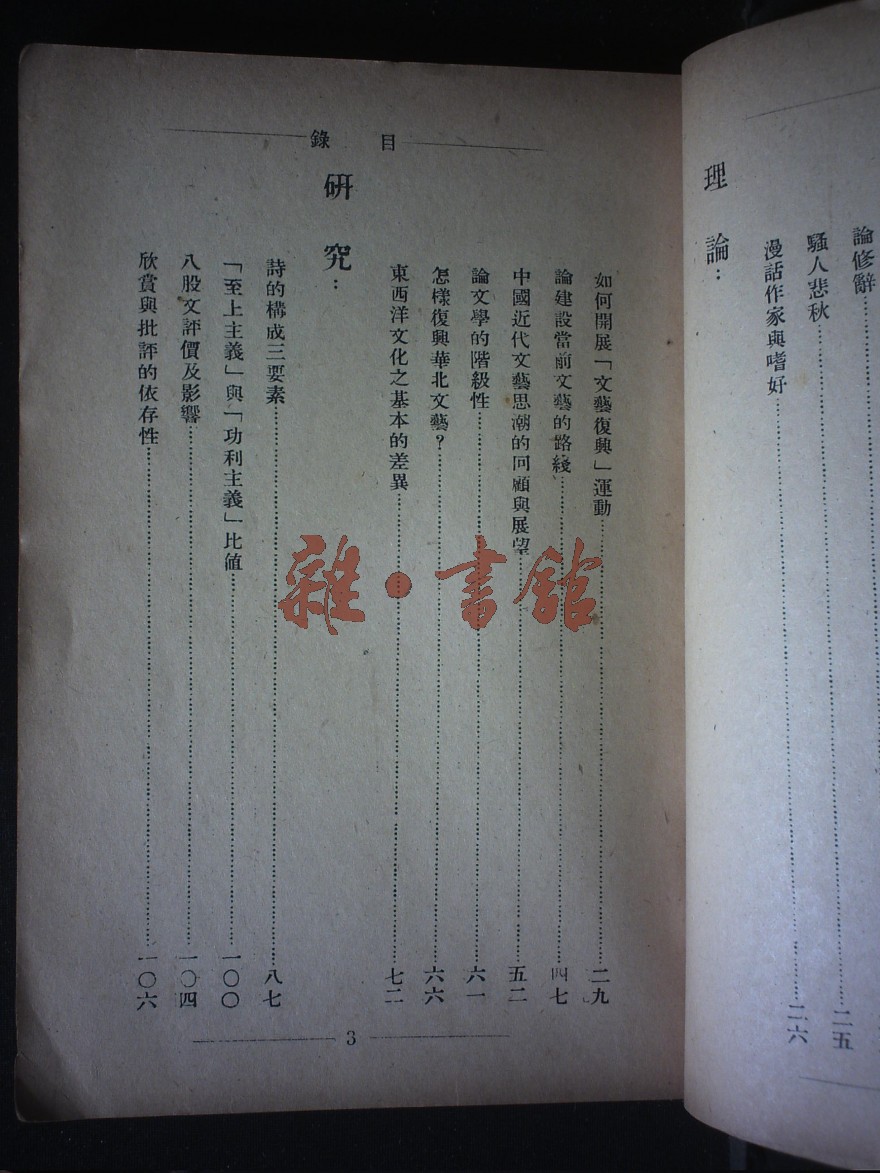 論修辭
騷人悲秋……二五
漫話作家與嗜好……二六
理論：
目錄
如何開展「文藝復興」運動……二九
論建設當前文藝的路綫……四七
中國近代文藝思潮的回顧與展望……五二
論文學的階級性……六一
怎樣復興華北文藝？……六六
東西洋文化之基本的差異……七二
研究：
詩的構成三要素……八七
「至上主義」與「功利主義」比值……一〇〇
八股文評價及影響……一〇四
欣賞與批評的依存性……一〇六
3
雜·書館